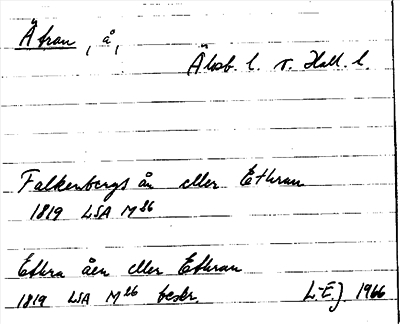 Ätran, å,
Älvsb. l. o. Hall. l.
Falkenbergs ån eller Ethran
1819 LSA M26
Ethra åen eller Ethran
1819 LSA M26 beskr.
L-E.J. 1966